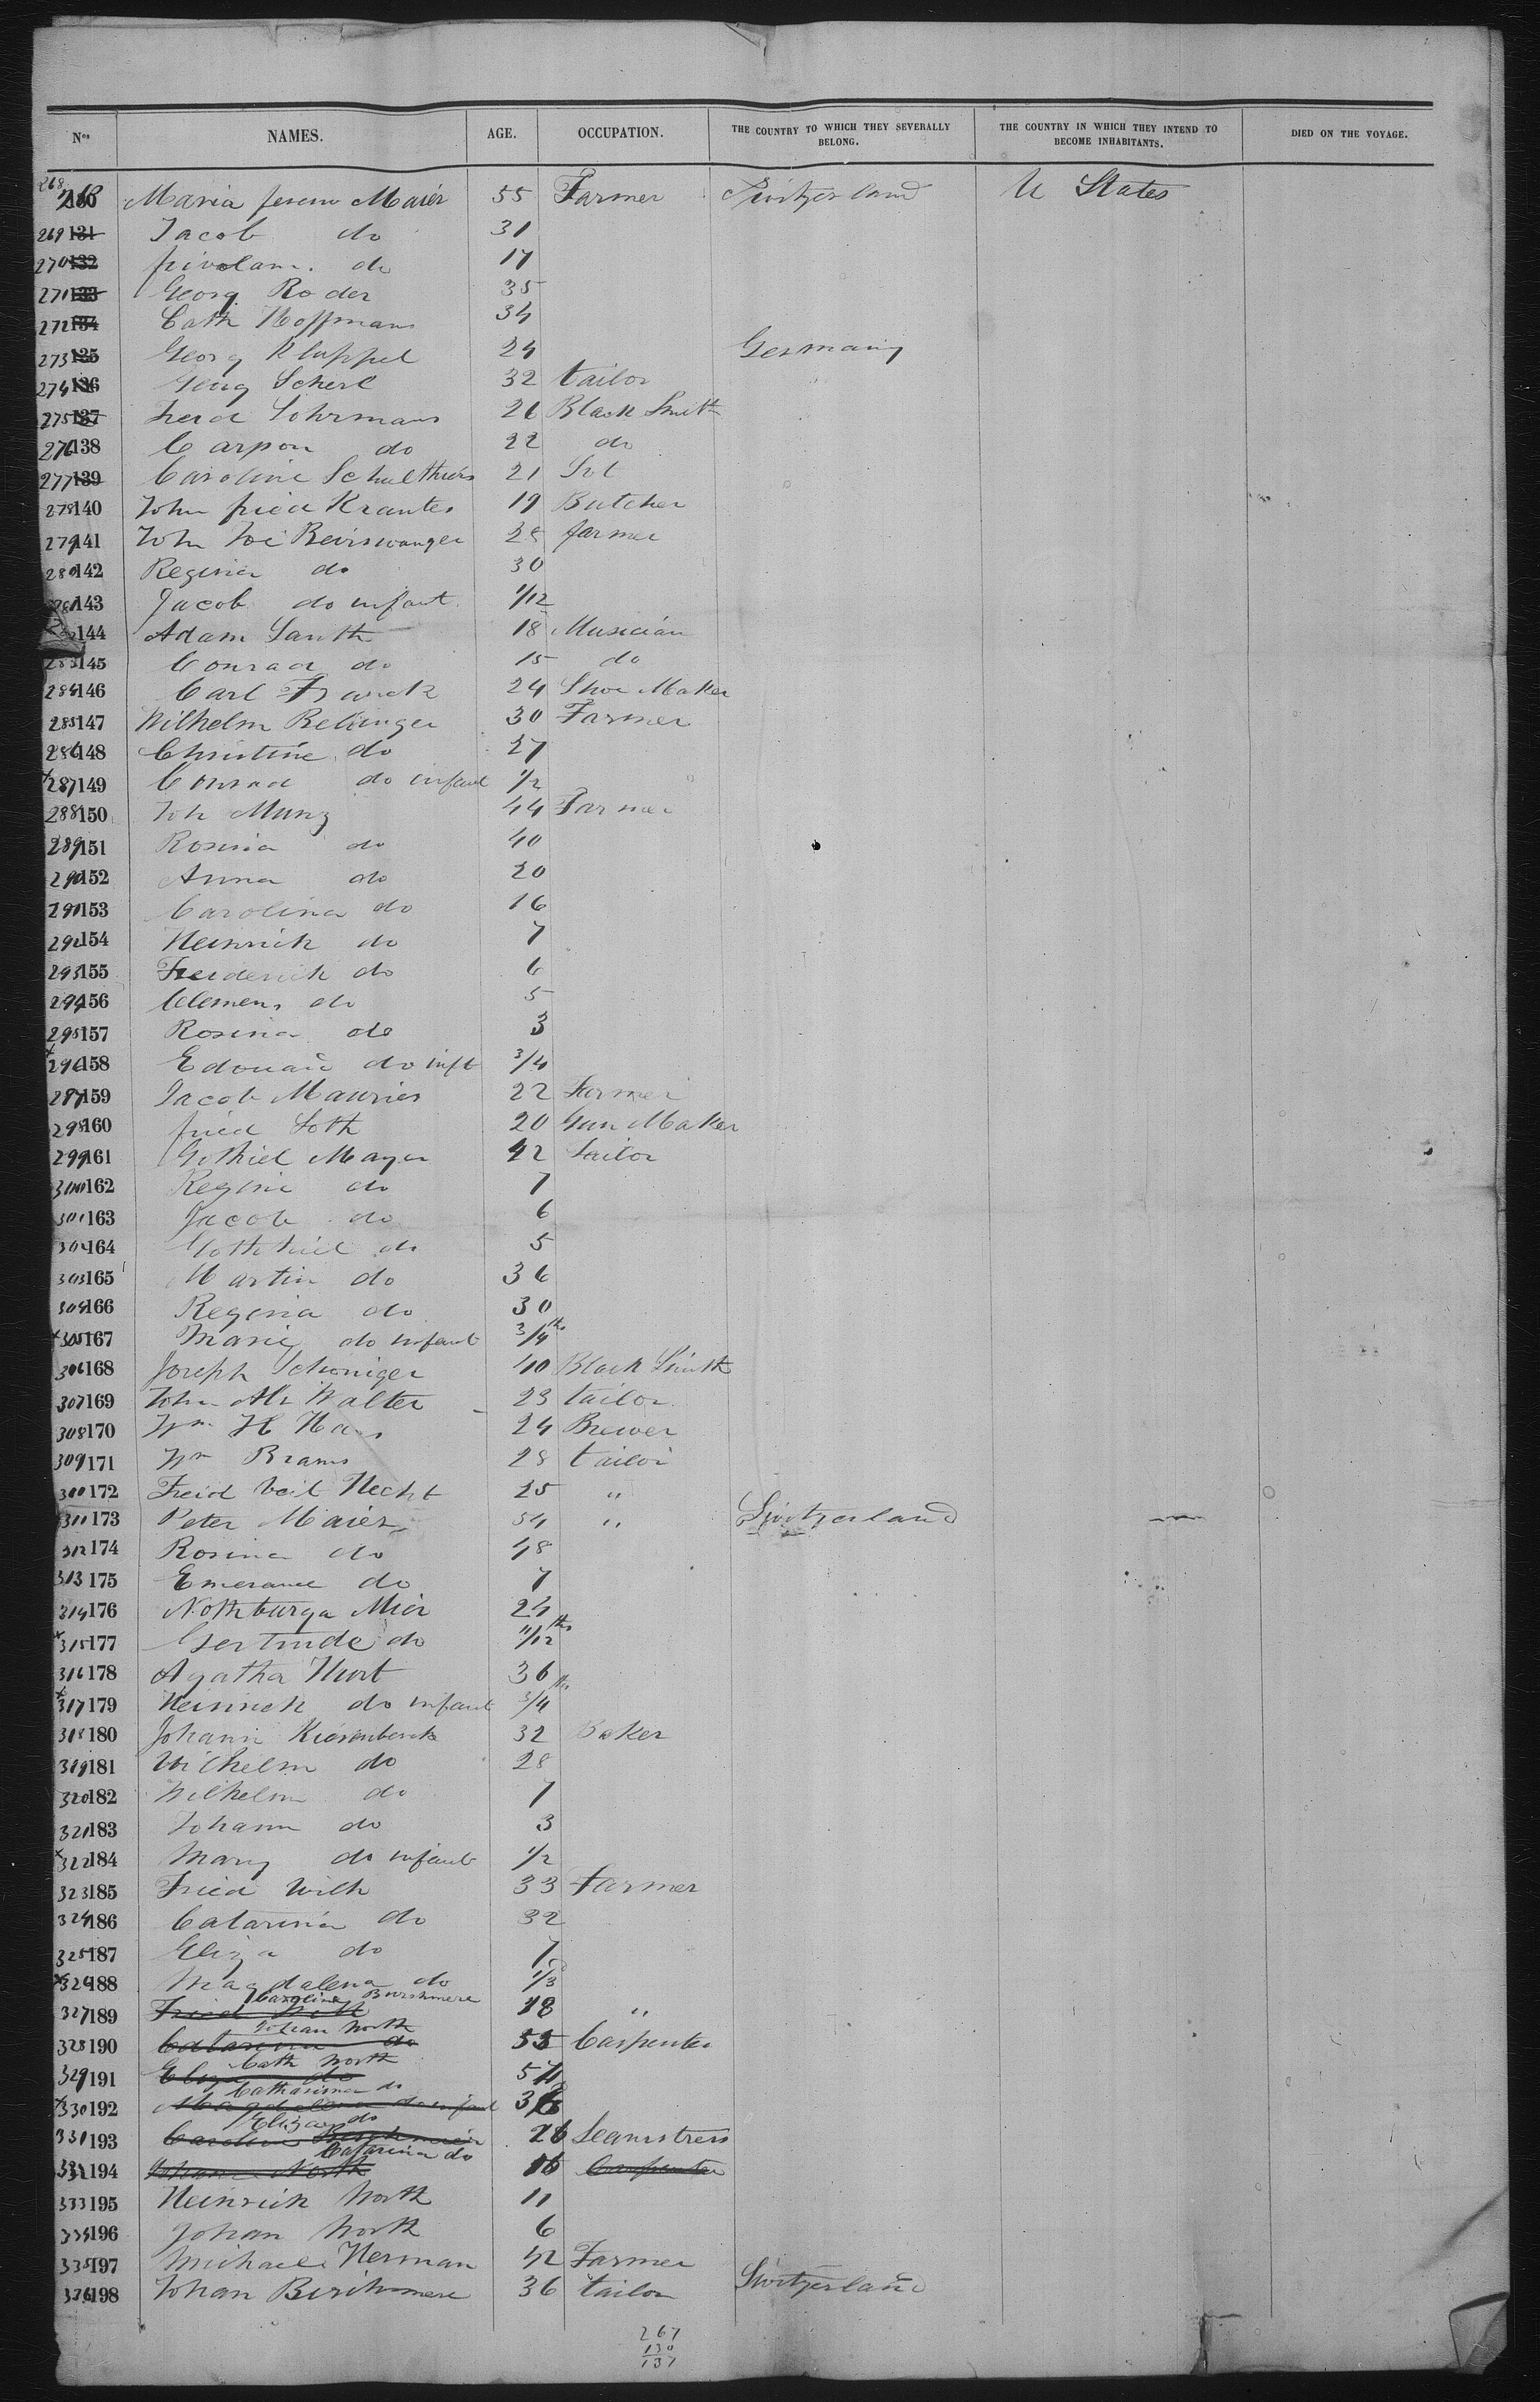 Nos NAMES. AGE. OCCUPATION. THE COUNTRY TO WHICH THEY SEVERALLY BELONG. THE COUNTRY IN WHICH THEY INTEND TO BECOME INHABITANTS. DIED ON THE VOYAGE.
268 Maria Maier 55 Farmer Switzerland U States
269 131 Jacob do 31
270 132 do 17
271 133 Georg Roder 35
272 134 Cath Hoffmans 34
273 135 Georg Kluppel 24 Germany
274 136 Georg Scherl 32 tailor
275 137 Lohrmans 26 Black Smith
276 138 Carpon do 22 do
277 139 Caroline Schulthies 21
278 140 John fried Krantes 19 Butcher
279 141 John Beirswanger 28 farmer
280 142 Regina do 30
281 143 Jacob do infant 1/12
144 Adam Santh 18 Musician
283 145 Conrad do 15 do
284 146 Carl Franck 24 Shoe Maker
285 147 Wilhelm Belzinger 30 Farmer
286 148 Christine do 27
x 287 149 Conrad do infant 1/2
288 150 Joh Munz 44 Farmer
289 151 Rosina do 40
290 152 Anna do 20
291 153 Carolina do 16
292 154 Heinrich do 7
293 155 Freiderich do 6
294 156 Clemens do 5
295 157 Rosina do 3
x 296 158 Edouard do inft 3/4
297 159 Jacob Maurier 22 Farmer
298 160 fried Loth 20 Gun Maker
299 161 Gothiel Mayer 42 Tailor
300 162 Regine do 7
301 163 Jacob do 6
302 164 do 5
303 165 Martin do 36
304 166 Regina do 30
x 305 167 Marie do infant 3/4 ths
306 168 Joseph Schoniger 40 Black Smith
307 169 John Alr Walter 23 tailor
308 170 Wm H Hans 24 Brewer
309 171 Wm Brams 28 tailor
300 172 Freid Veil Hecht 25 "
311 173 Peter Maier 54 " Switzerland
312 174 Rosina do 48
313 175 Emerance do 7
314 176 Nothburga Mier 24
x 315 177 Gertrude do 11/12 ths
316 178 Agatha Hurt 36
x 317 179 Heinrich do infant 3/4 ths
318 180 Johann Kiesenbeck 32 Baker
319 181 Wilhelm do 28
320 182 Wilhelm do 7
321 183 Johann do 3
x 322 184 Mary do infant 1/2
323 185 Fried Wilh 33 Farmer
324 186 Catarina do 32
325 187 Eliza do 7
x 326 188 Magdalena do 1/3
Caroline Burshmere
327 189 Fried Wilh 18 "
Johan North
328 190 Catarina do 55 Carpenter
Cath North
329 191 Eliza do 54
Catharina do
x 330 192 Magdalena do infant 36
Eliza do
331 193 Caroline 26 Seamstress
Catarina do
332 194 Johann North 16 Carpenter
333 195 Heinrich North 11
334 196 Johan North 6
335 197 Michael Herman 42 Farmer
336 198 Johan Berishmere 36 tailor Switzerland
267
130
137